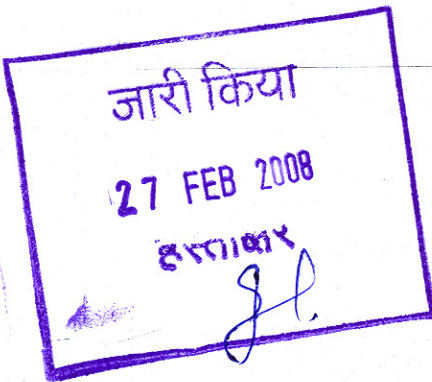 जारी किया
27 FEB 2008
हस्ताक्षर